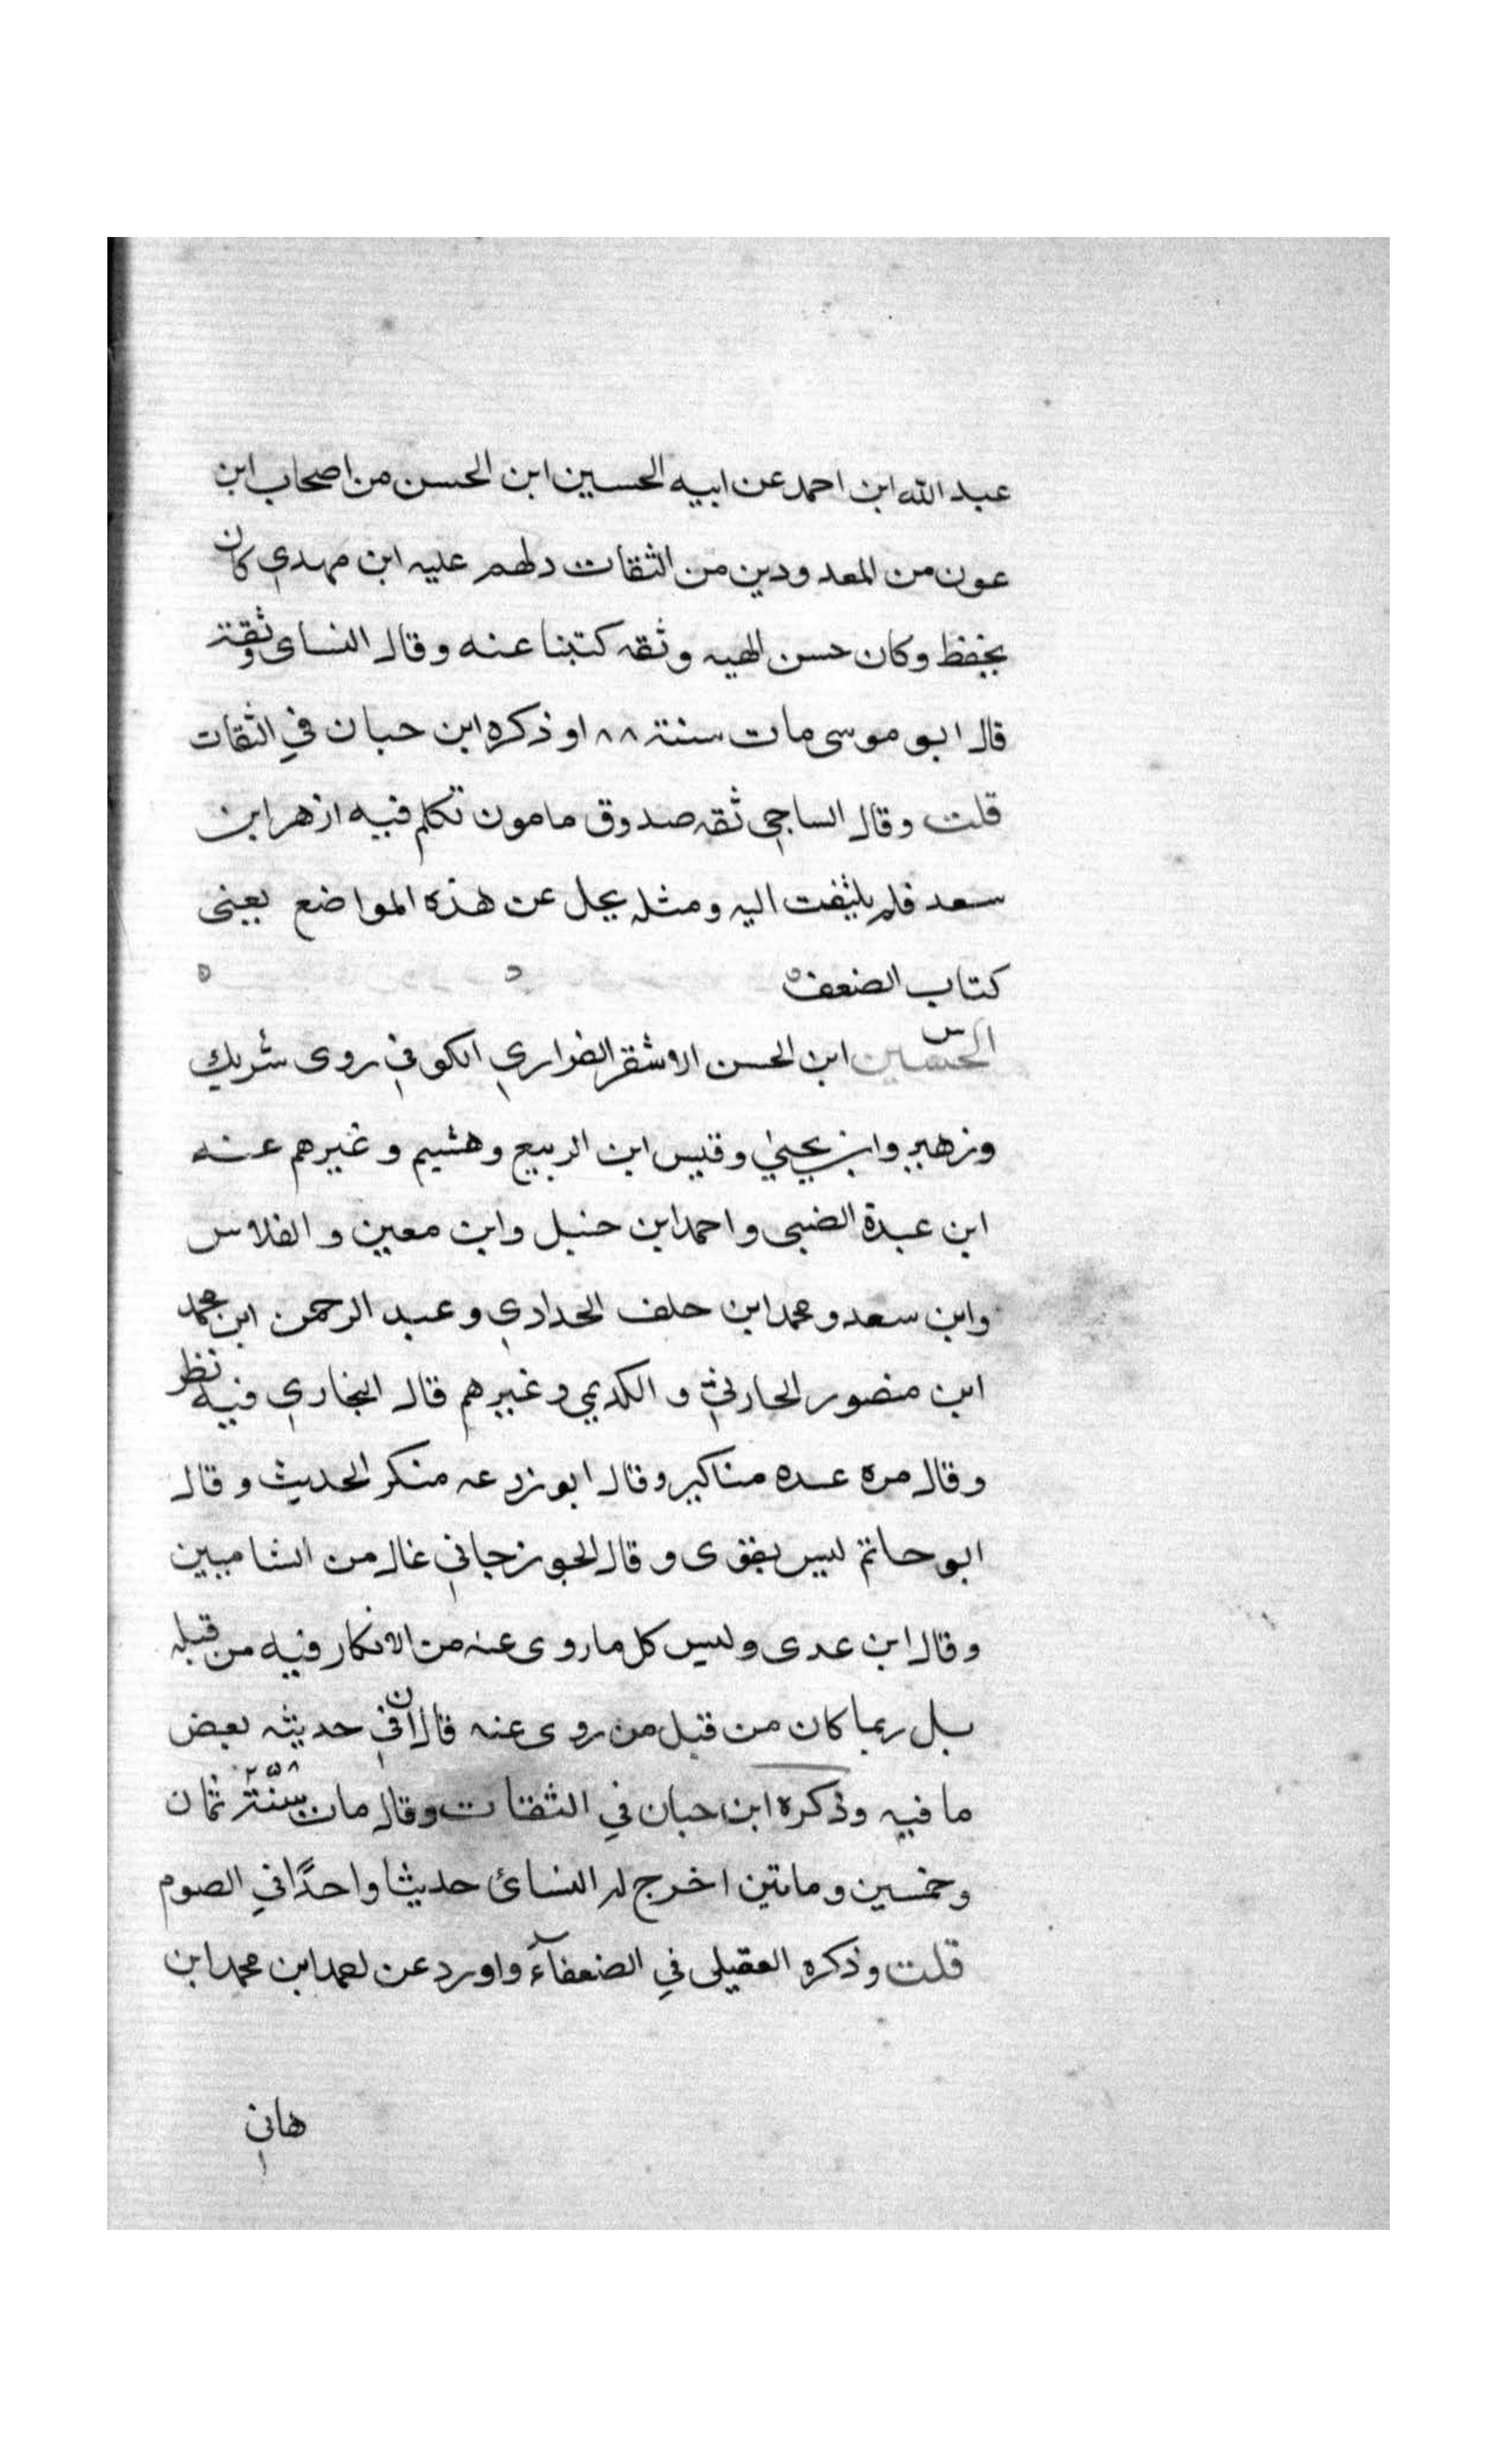 عبد الله ابن احمد عن ابيه الحسين ابن الحسن من اصحاب ابن
عون من المعدودين من الثقات دلهم عليه ابن مهدي كان
يحفظ وكان حسن الهيه وثقه كتبنا عنه وقال النساى ثقة
قال ابو موسى مات سنة ١٨٨ وذكره ابن حبان في الثقات
قلت وقال الساجي ثقه صدوق مامون تكلم فيه ازهر ابن
سعد فلم يلتفت اليه ومثله يجل عن هذه المواضع يعني
كتاب الضعفه
س
الحسين ابن الحسن الاشقر الفزاري الكوفي روى شريك
وزهير وابن يحيي وقيس ابن الربيع وهشيم وغيرهم عنه
ابن عبدة الضبى واحمد ابن حنبل وابن معين والفلاس
وابن سعد ومحمد ابن حلف الحدادي وعبد الرحمن ابن محمد
ابن منصور الحارثي والكديمي وغيرهم قال البخاري فيه نظر
وقال مره عده مناكير وقال ابو زرعه منكر الحديث وقال
ابو حاتم ليس بقوى وقال الجوزجاني غال من الشاميين
وقال ابن عدى وليس كل ما روى عنه من الانكار فيه من قبله
بل ربما كان من قبل من روى عنه قال ان في حديثه بعض
ما فيه وذكره ابن حبان في الثقات وقال مات سنة ٢٥٨ ثمان
وخمسين وماتين اخرج له النسائ حديثا واحدًا في الصوم
قلت وذكره العقيلى في الضعفآء واورد عن احمد ابن محمد ابن
هاني